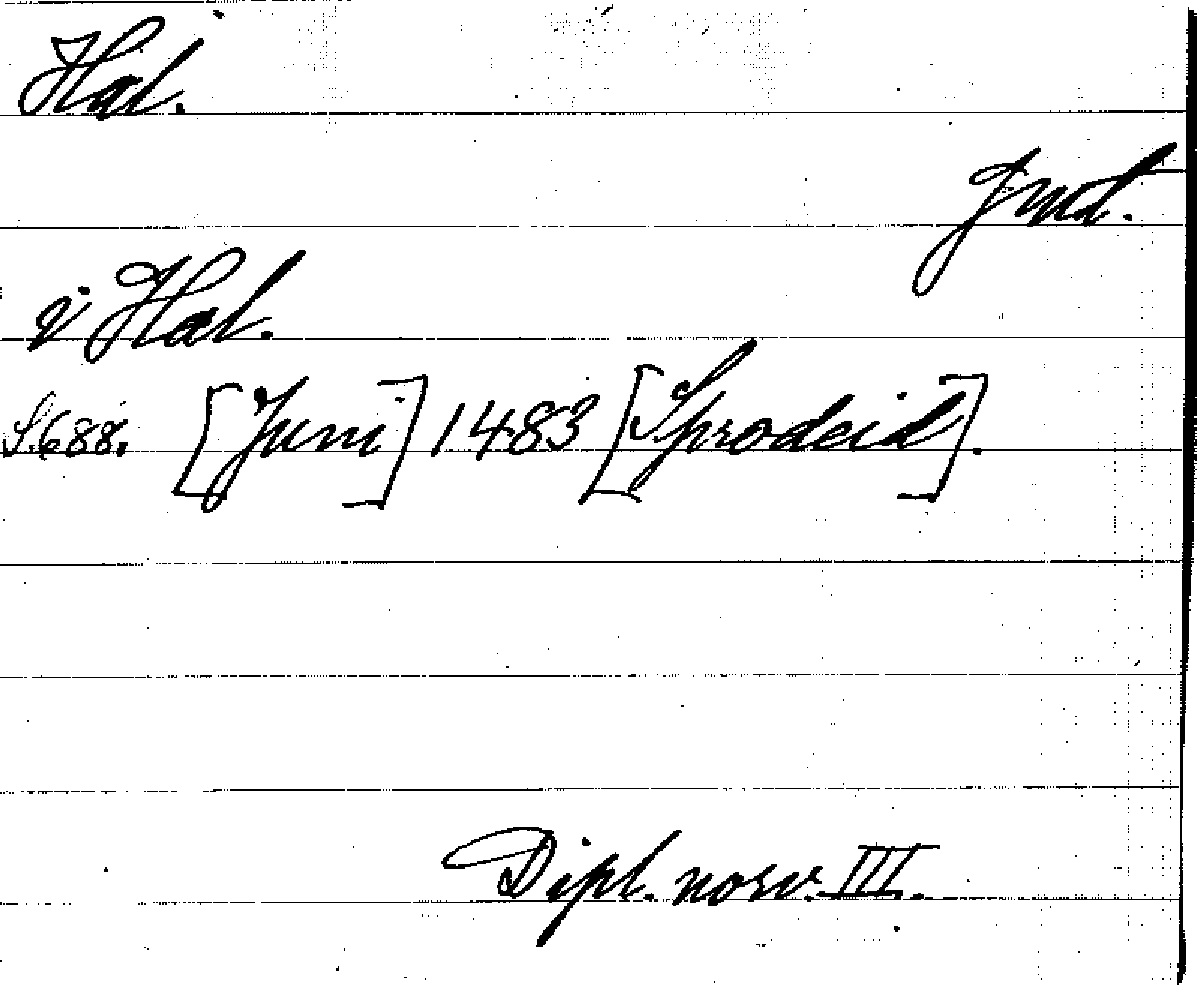 Hal.
Jmt.
i Hal.
S. 688. [Juni] 1483 [Sprodeid].
Dipl. norv. III.